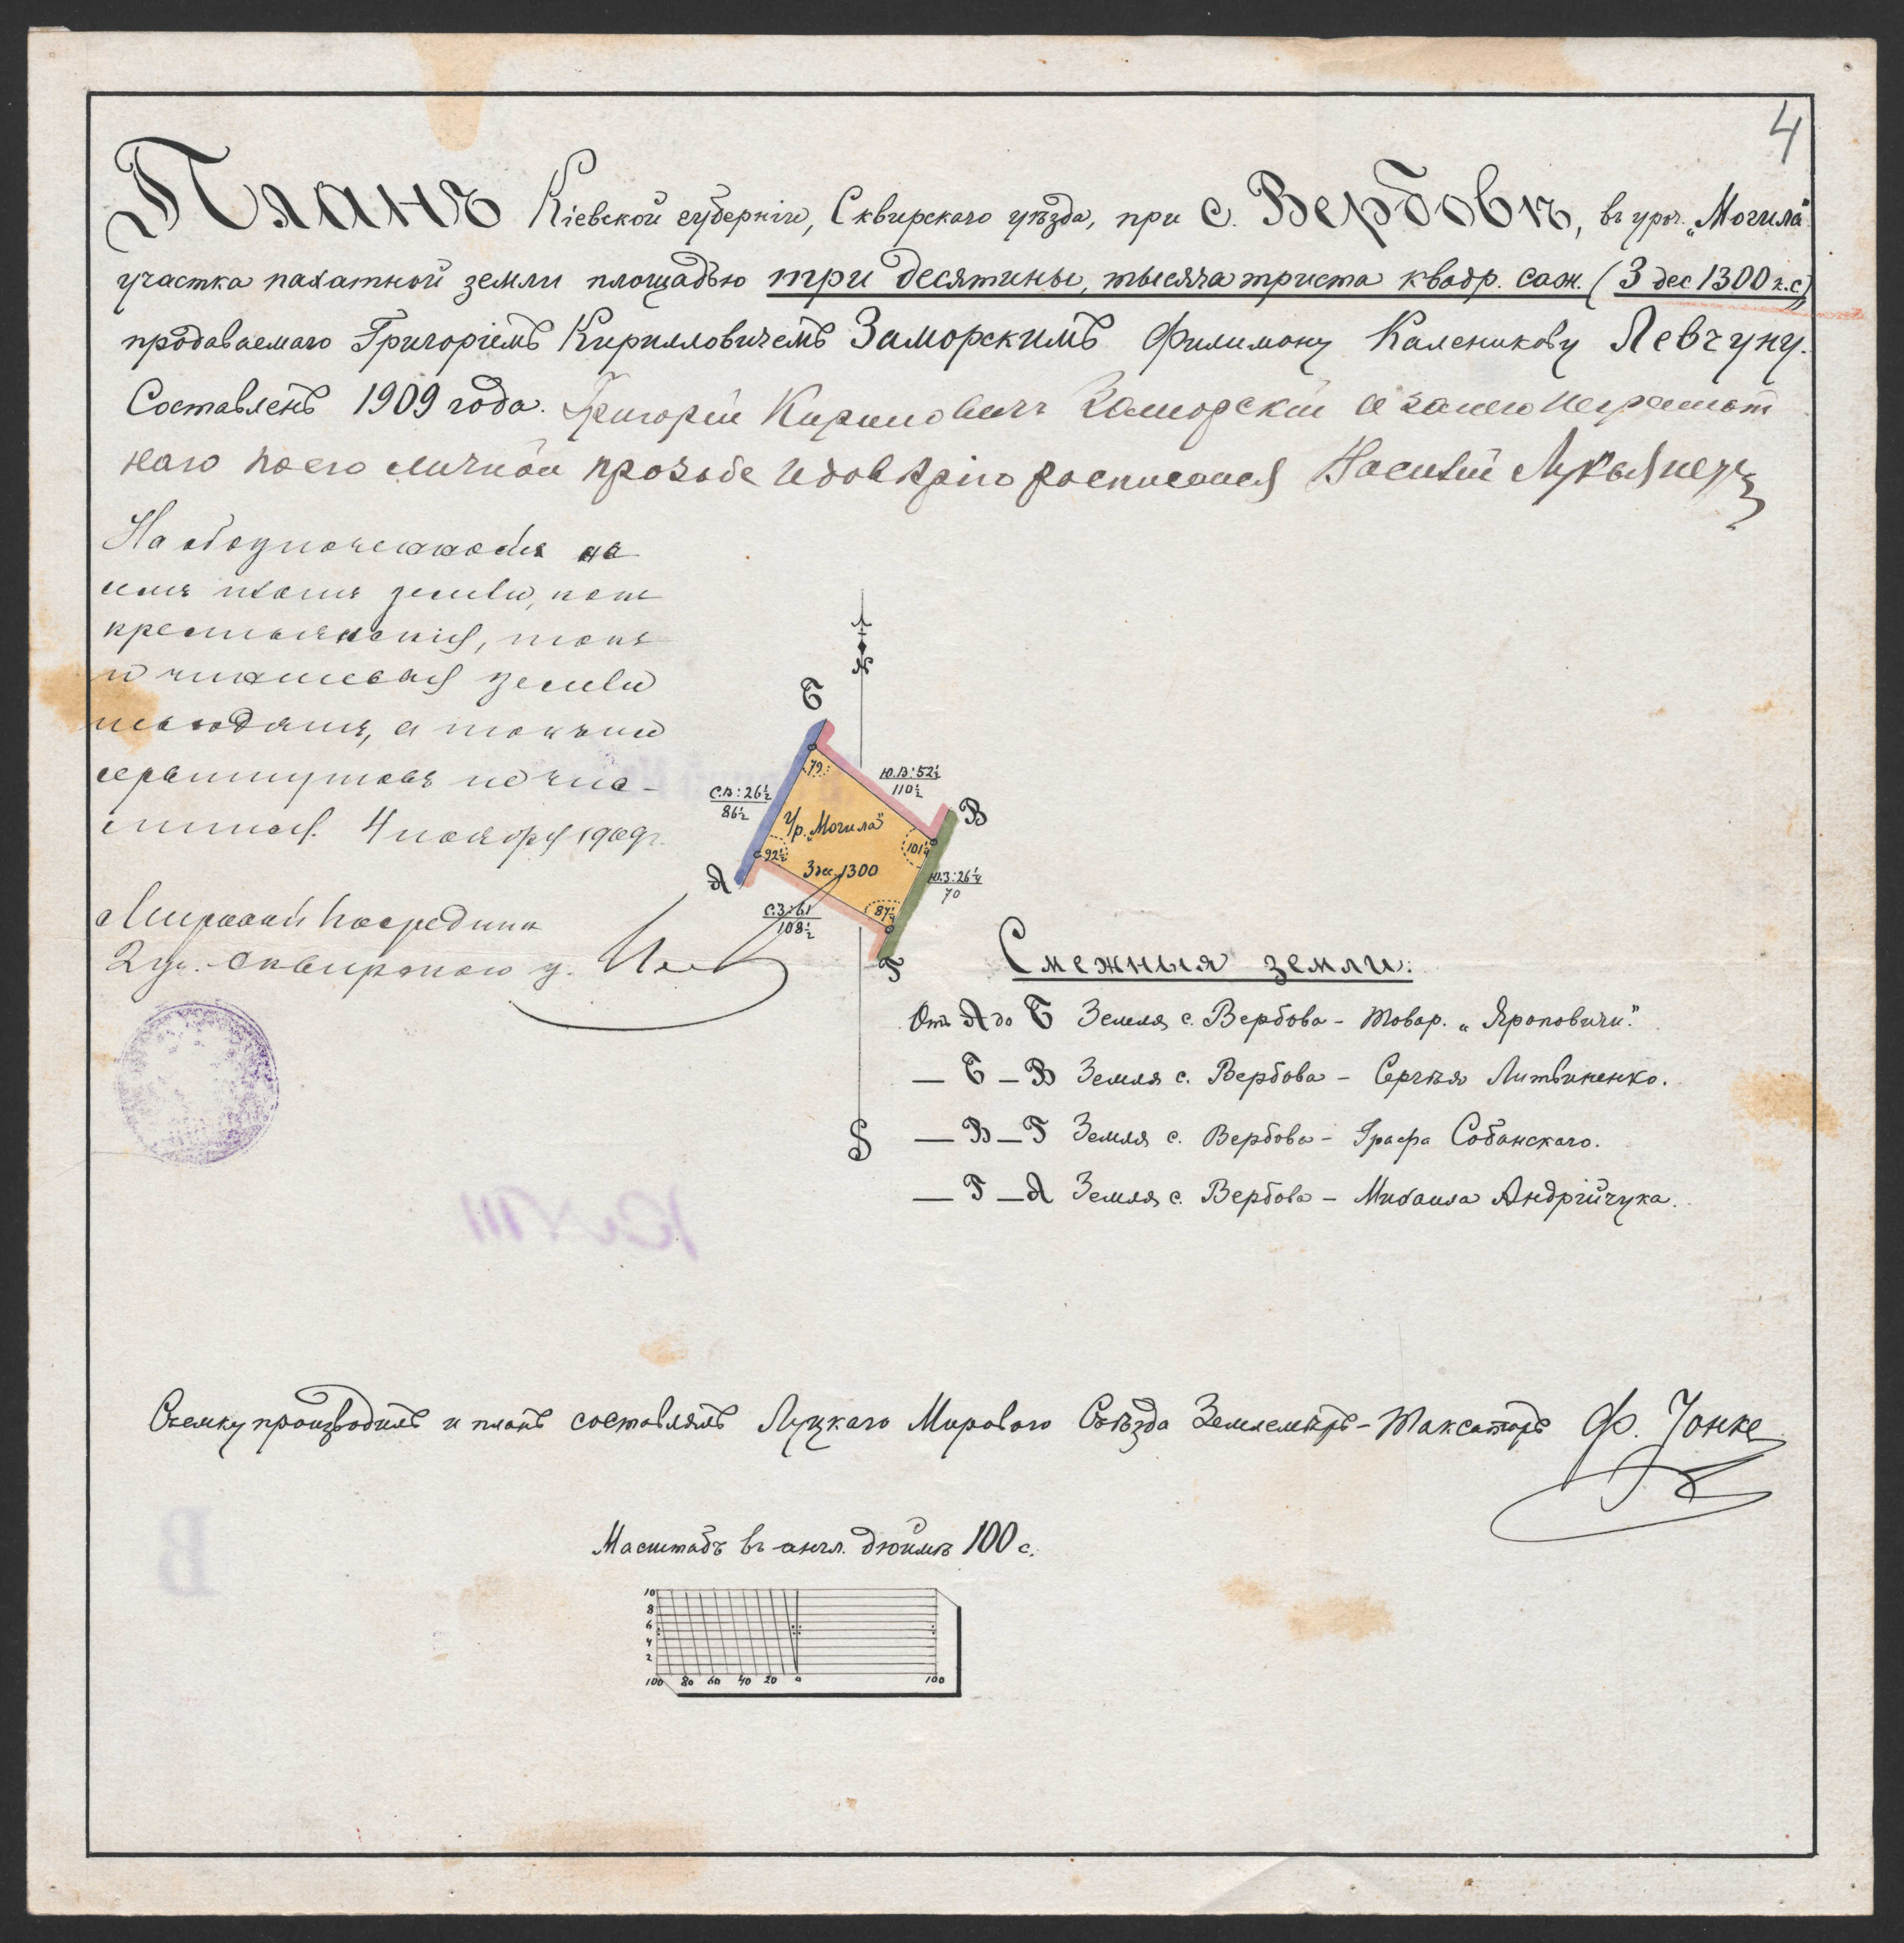 4
Планъ Кіевской губерніи, Сквирскаго уѣзда, при с. Вербовѣ, въ уроч. „Могила"
участка пахатной земли площадью три десятины, тысяча триста квадр. саж. (3 дес 1300 к.с.),
продаваемаго Григоріемъ Кирилловичемъ Заморскимъ Филимону Каленикову Левчуну.
Составленъ 1909 года. Григорій Кириловичъ Заморскій а занего неграмот
наго поего личной прозьбе идовѣрію росписался Василий Лукьянецъ
На обозначенной на
семъ планѣ земли, какъ
крестьянскія, такъ
и чиншевыя земли
невходятъ, а также
сервитутовъ нечис-
лится. 4 ноября 1909 г.
Мировой Посредник
2 уч. Сквирскаго у.
N
Б
79
С.В:26½
86½
Ю.В:52½
110½
В
Ур. „Могила"
101¼
92½
3 дес. 1300
Ю.З:26¼
70
А
С.З:61
108½
87¼
Г
S
Смежныя земли:
Отъ А до Б Земля с. Вербова - Товар. „Яроповичи".
— Б — В Земля с. Вербова - Сергѣя Литвиненко.
— В — Г Земля с. Вербова - Графа Собанскаго.
— Г — А Земля с. Вербова - Михаила Андрійчука.
Съемку производилъ и планъ составлялъ Луцкаго Мирового Съѣзда Землемѣръ-Таксаторъ Ф. Йонке
Масштабъ въ англ. дюймѣ 100 с.
10
8
6
4
2
100 80 60 40 20 0 100